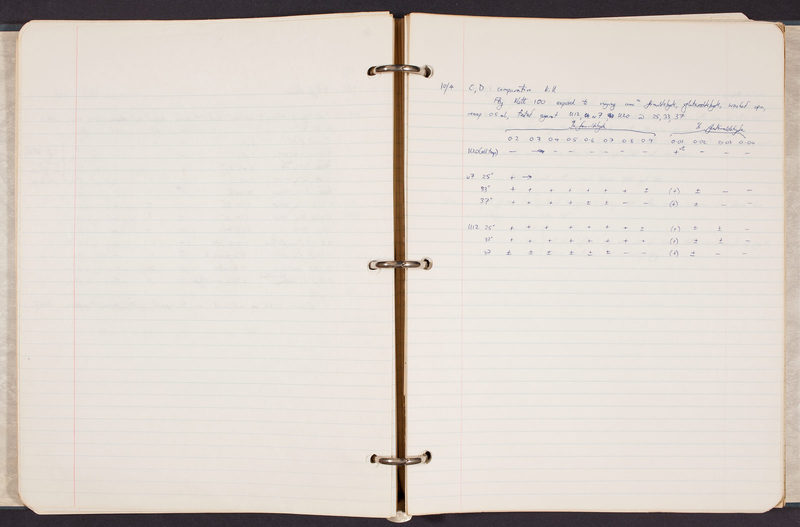 10/4 C, D: comparative kill
100 exposed to varying concⁿ formaldehyde, glutaraldehyde, washed 
0.5 ml, tested against U12, U20 @ 25, 33, 37
% formaldehyde % glutaraldehyde
0.2 0.3 0.4 0.5 0.6 0.7 0.8 0.9 0.01 0.02 0.03 0.04
U20 (all temp) – → – – – – – – + – – –
25° + →
33° + + + + + + + ± (+) ± – –
37° + + + + ± ± – – (+) ± – –
U12 25° + + + + + + + ± (+) ± ± –
33° + + + + + + + + (+) ± ± –
± ± ± ± ± ± – – (+) ± – –